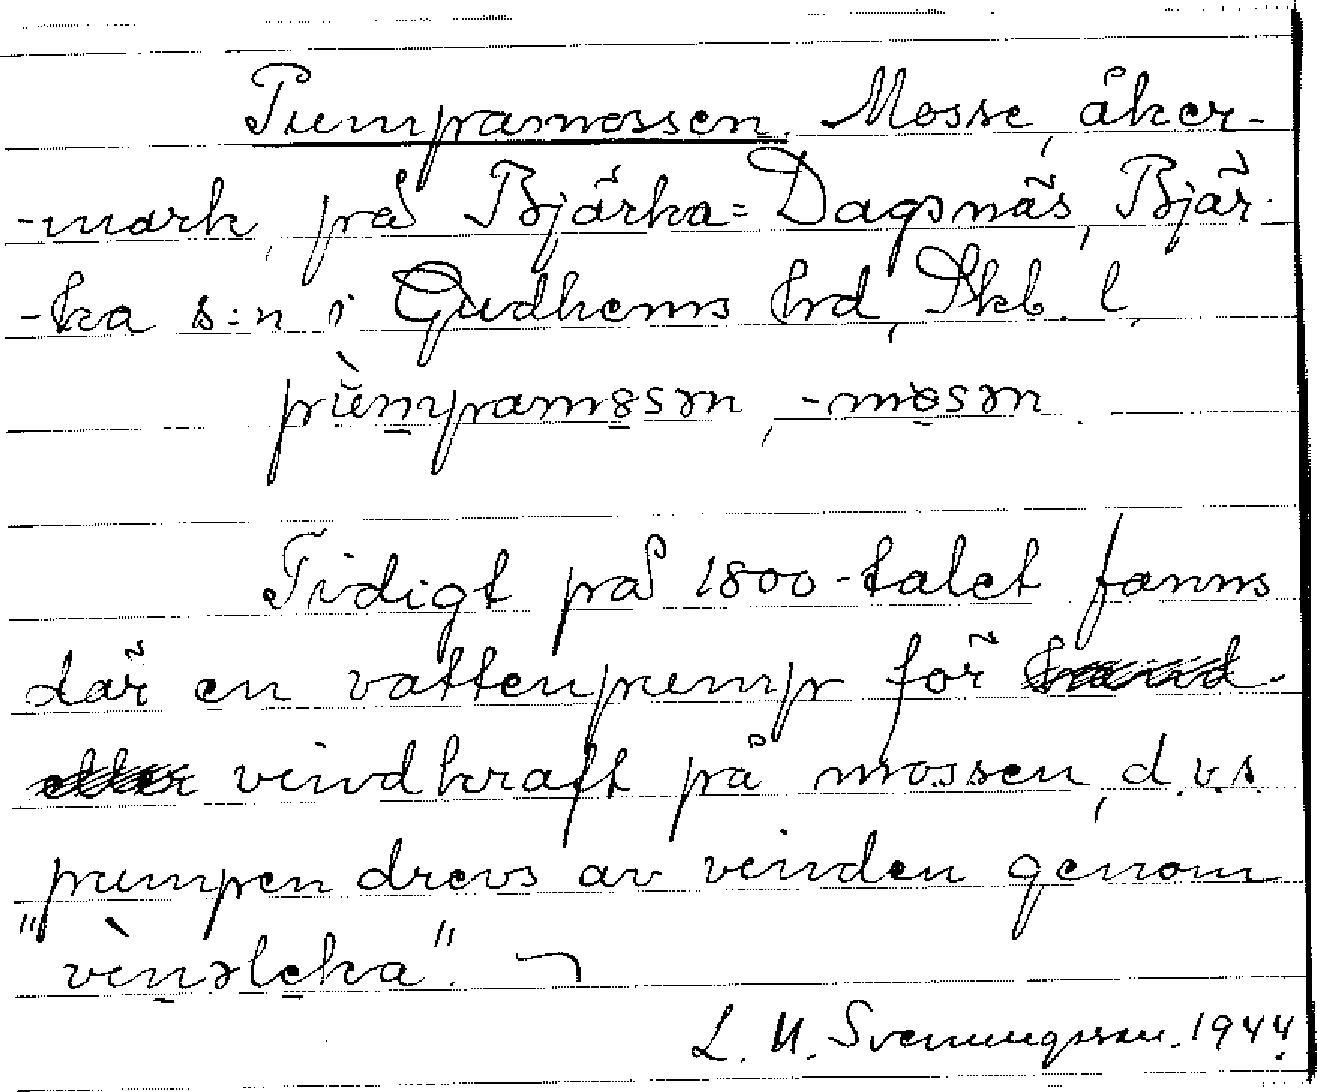 Pumpamossen. Mosse, åker-
-mark, på Bjärka=Dagsnäs, Bjär-
-ka s:n i Gudhems hrd, Skb. l.
pùmpam8sən, -mosən.
Tidigt på 1800-talet fanns
där en vattenpump för hand-
eller vindkraft på mossen, d.v.s.
pumpen drevs av vinden genom
"vìnəleka". ¬
L. M. Svenungsson. 1944.